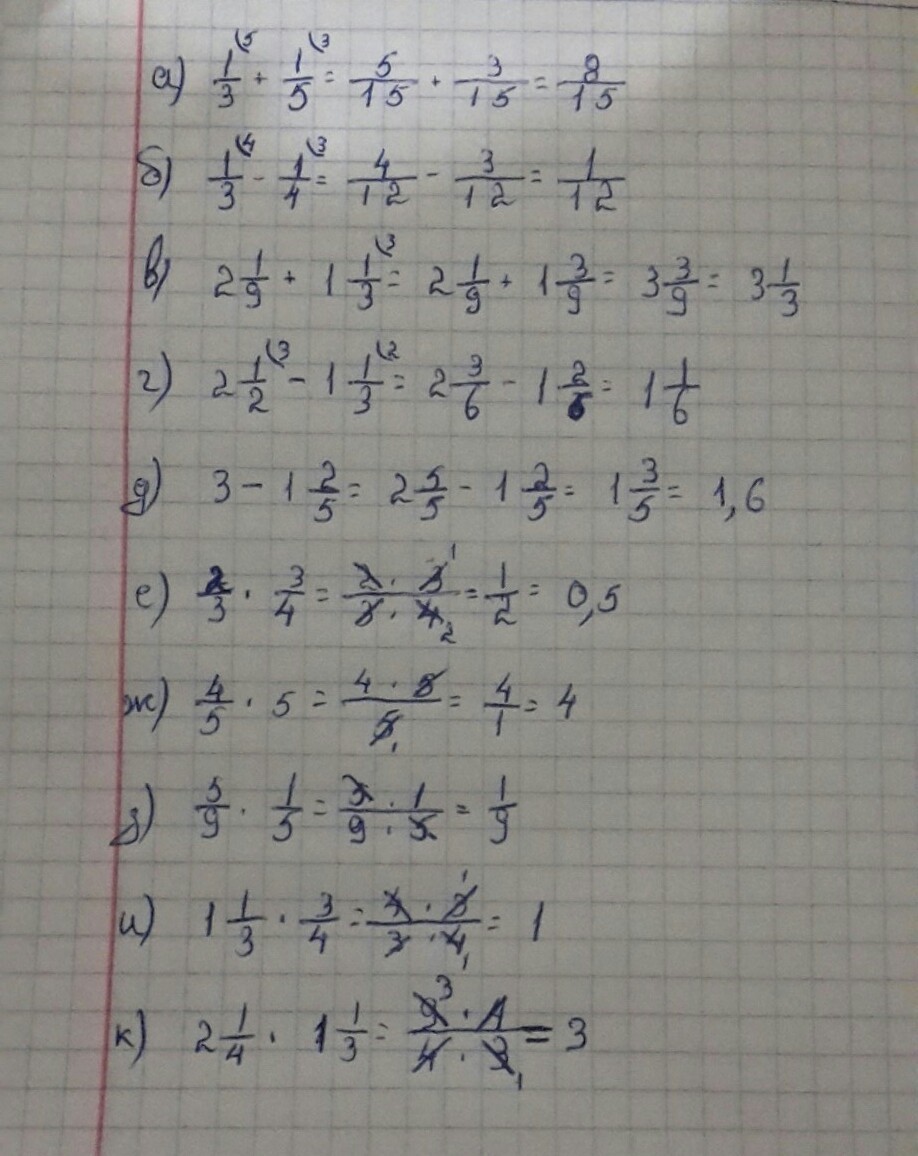 а) 1/3(5 + 1/5(3 = 5/15 + 3/15 = 8/15
б) 1/3(4 - 1/4(3 = 4/12 - 3/12 = 1/12
в) 2 1/9 + 1 1/3(3 = 2 1/9 + 1 3/9 = 3 3/9 = 3 1/3
г) 2 1/2(3 - 1 1/3(2 = 2 3/6 - 1 2/6 = 1 1/6
д) 3 - 1 2/5 = 2 5/5 - 1 2/5 = 1 3/5 = 1,6
е) 2/3 · 3/4 = 2 · 3 1/3 · 4 2 = 1/2 = 0,5
ж) 4/5 · 5 = 4 · 5/5 1 = 4/1 = 4
з) 5/9 · 1/5 = 5 · 1/9 · 5 = 1/9
и) 1 1/3 · 3/4 = 4 · 3 1/3 · 4 1 = 1
к) 2 1/4 · 1 1/3 = 9 3 · 4 1/4 · 3 1 = 3